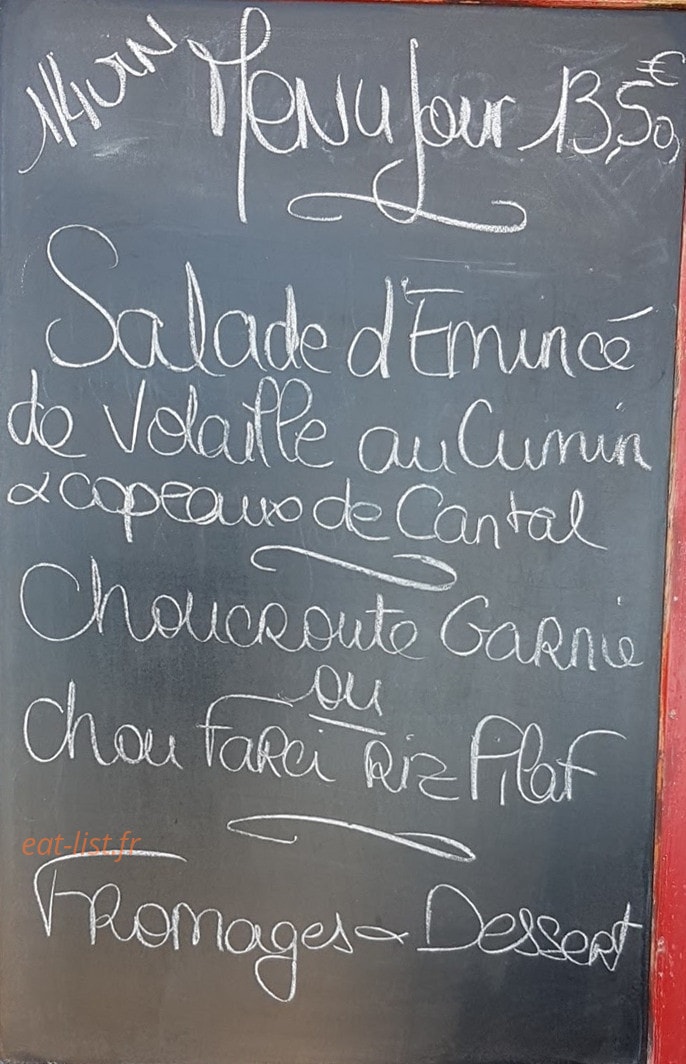 1/4 vin Menu Jour 13,50 €
Salade d'Emincé
de Volaille au Cumin
& copeaux de Cantal
Choucroute Garnie
ou
chou Farci Riz Pilaf
eat-list.fr
Fromages & Dessert